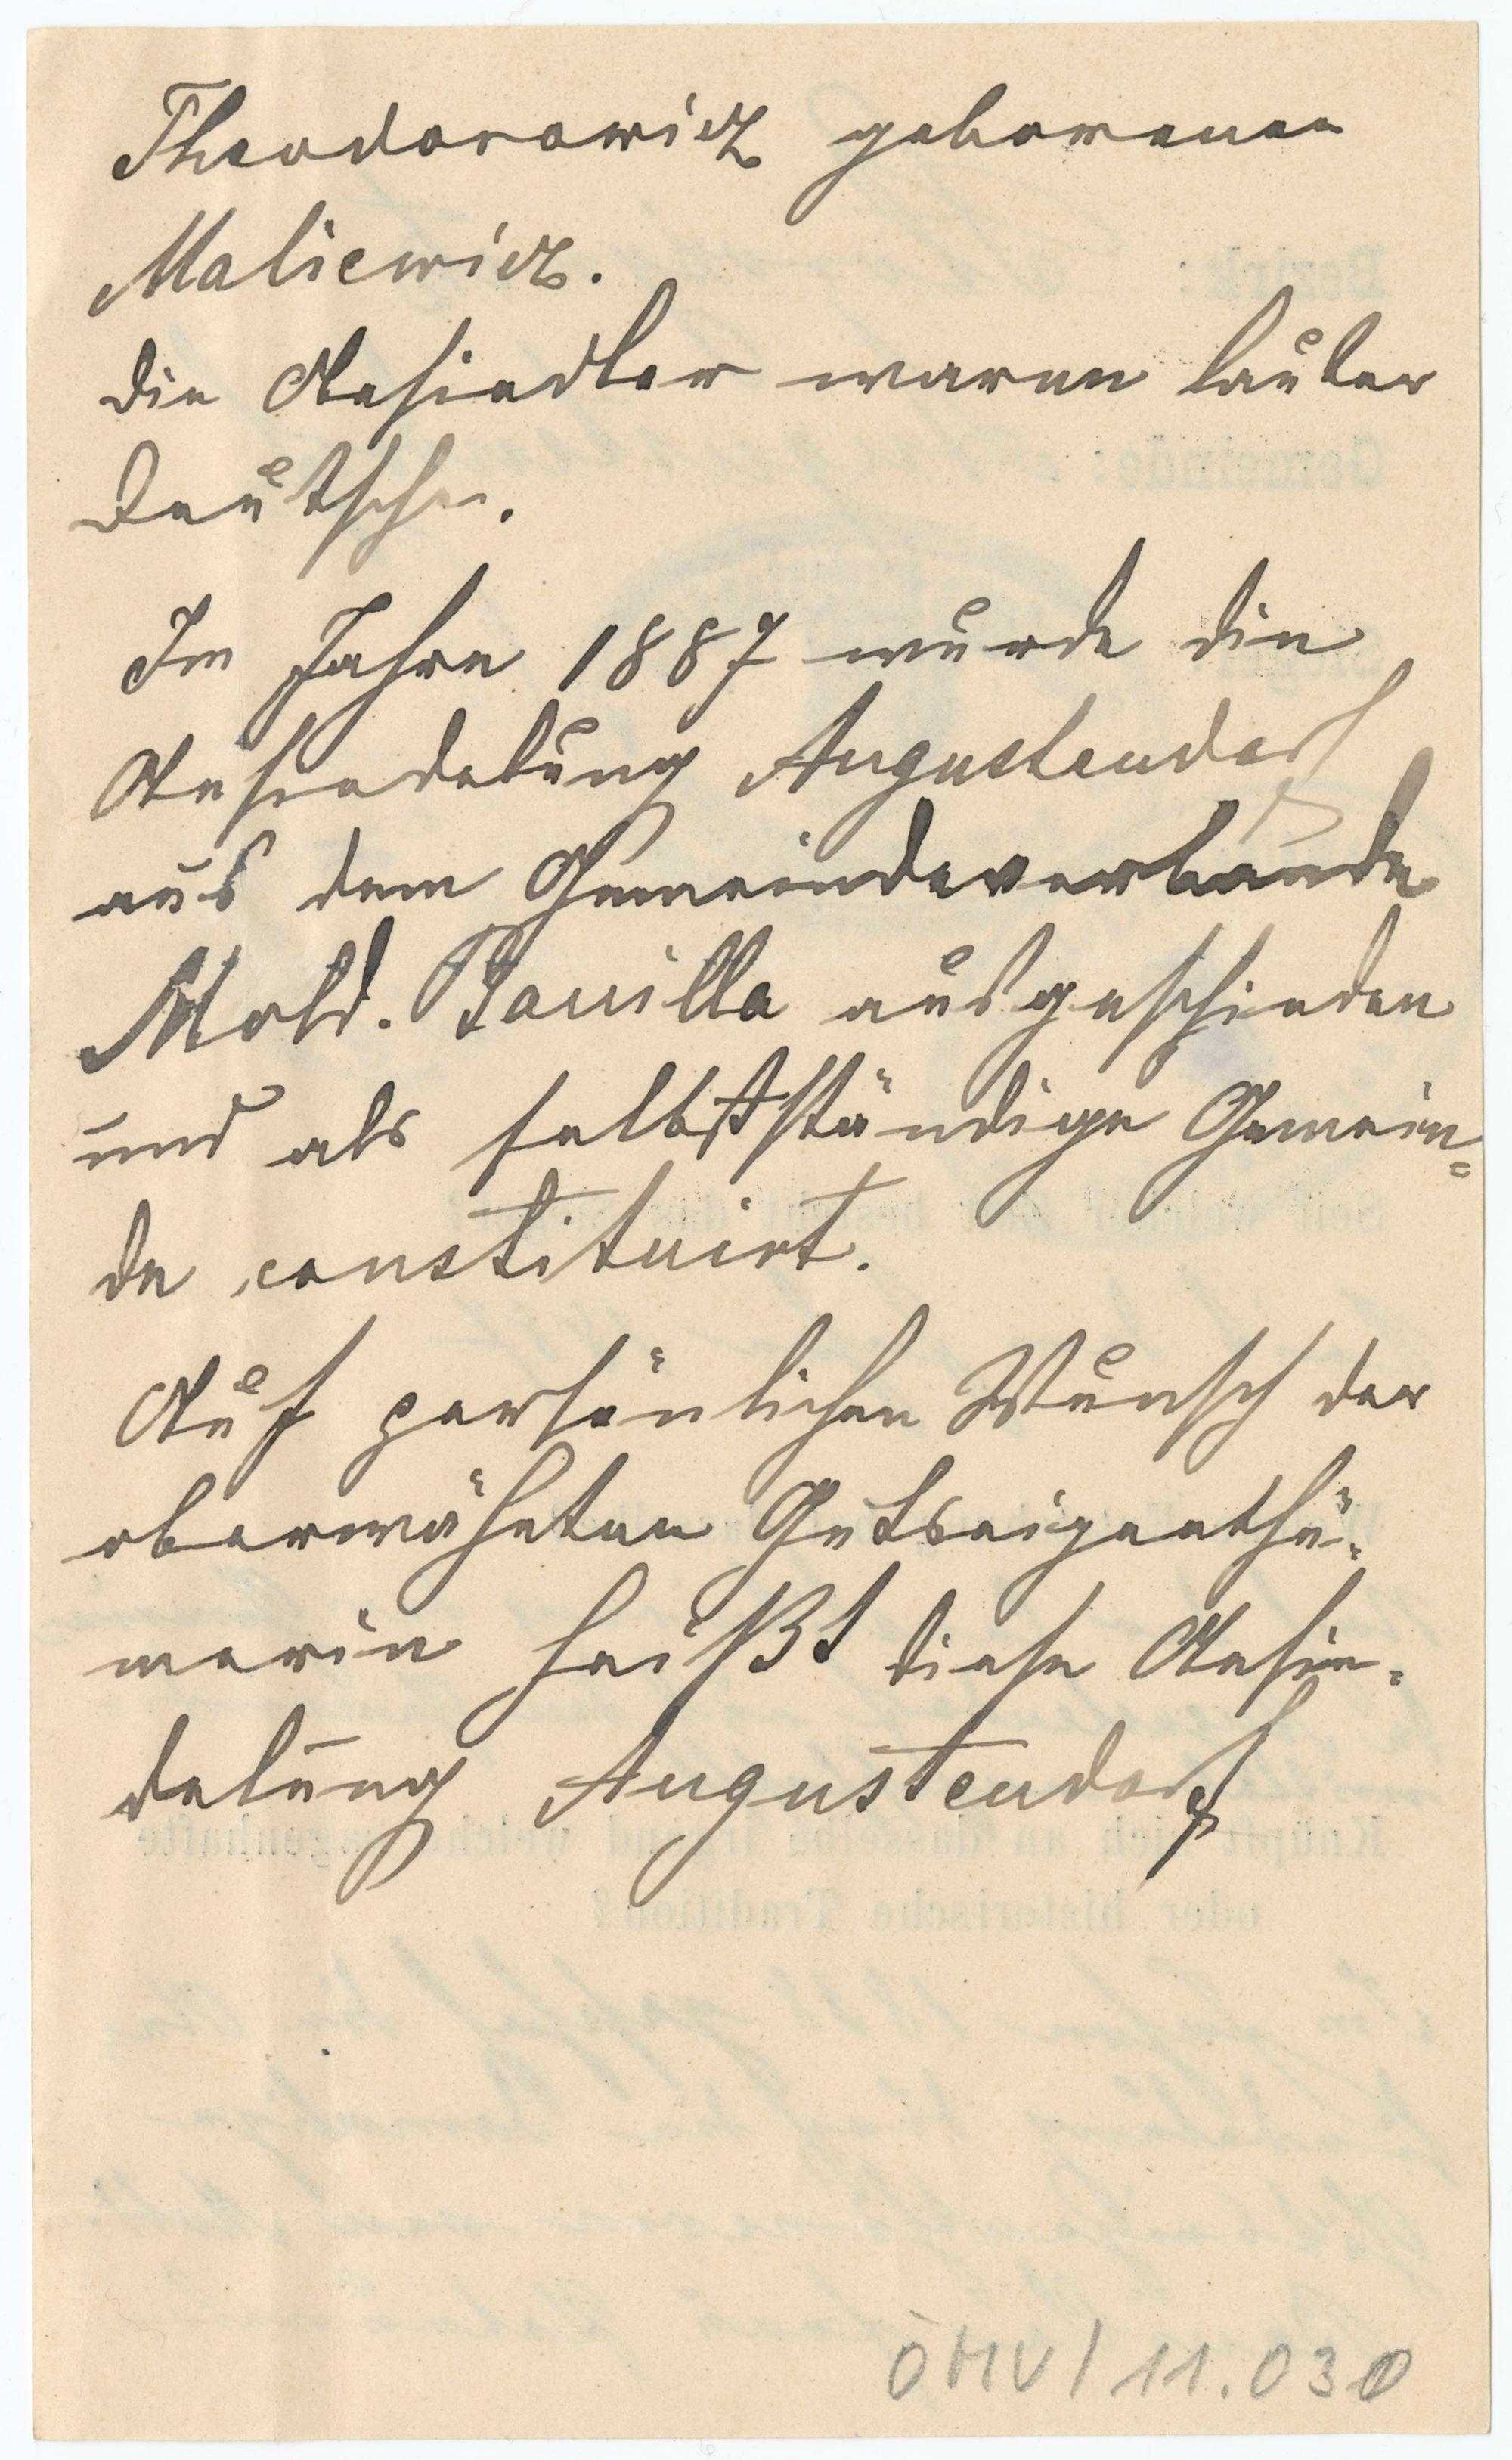 Theodorowicz geborenen
Maliewicz.
die Ansiedler waren lauter
Deutsche.
Im Jahre 1887 wurde die
Ansiedelung Augustendorf
aus dem Gemeindeverbande
Mold. Banilla ausgeschieden
und als selbstständige Gemein=
de constituirt.
Auf persönlichen Wunsch der
oberwähnten Gutseigenthü=
merin heißt diese Ansie=
delung Augustendorf
ÖMV/11.030